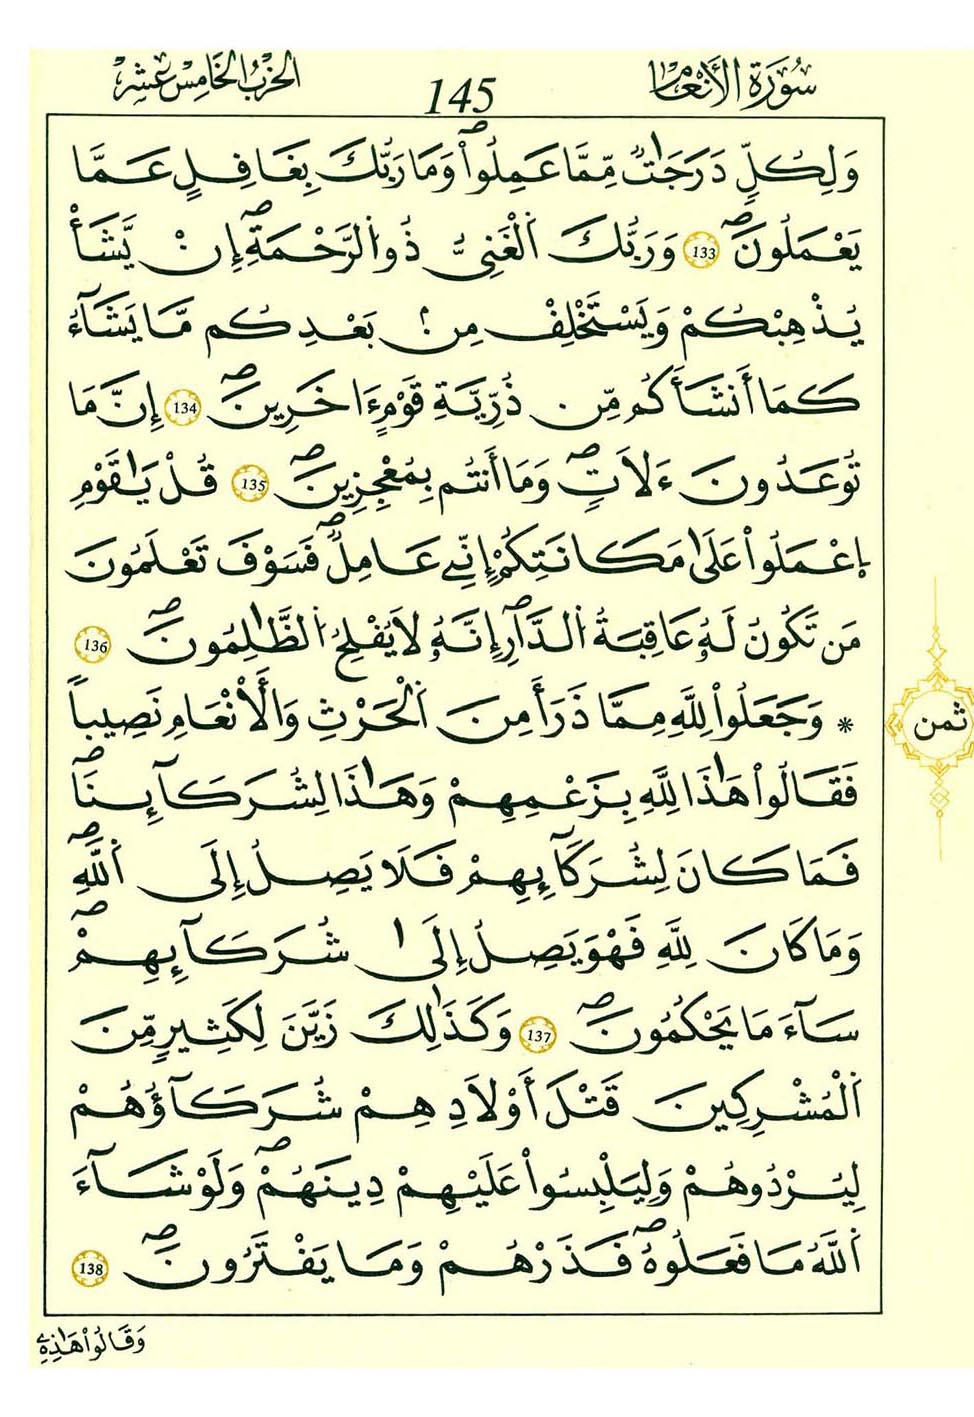 سُورَةُ الأَنْعَامِ
145
الحِزْبُ الخَامِسَ عَشَرَ
وَلِكُلٍّ دَرَجَٰتٌ مِّمَّا عَمِلُواْۖ وَمَا رَبُّكَ بِغَافِلٍ عَمَّا
يَعْمَلُونَۖ 133 وَرَبُّكَ اَ۬لْغَنِيُّ ذُو اُ۬لرَّحْمَةِۖ إِنْ يَّشَأْ
يُذْهِبْكُمْ وَيَسْتَخْلِفْ مِنۢ بَعْدِكُم مَّا يَشَآءُ
كَمَا أَنشَأَكُم مِّن ذُرِّيَّةِ قَوْمٍ ءَاخَرِينَۖ 134 إِنَّ مَا
تُوعَدُونَ ءَلَاتٖۖ وَمَا أَنتُم بِمُعْجِزِينَۖ 135 قُلْ يَٰقَوْمِ
اِ۪عْمَلُواْ عَلَىٰ مَكَانَتِكُمُۥٓ إِنِّے عَامِلٞۖ فَسَوْفَ تَعْلَمُونَ
مَن تَكُونُ لَهُۥ عَاقِبَةُ اُ۬لدَّارِۖ إِنَّهُۥ لَا يُفْلِحُ اُ۬لظَّٰلِمُونَۖ 136
* وَجَعَلُواْ لِلهِ مِمَّا ذَرَأَ مِنَ اَ۬لْحَرْثِ وَالْأَنْعَامِ نَصِيباً
فَقَالُواْ هَٰذَا لِلهِ بِزَعْمِهِمْ وَهَٰذَا لِشُرَكَآئِنَاۖ
فَمَا كَانَ لِشُرَكَآئِهِمْ فَلَا يَصِلُ إِلَى اَ۬للَّهِۖ
وَمَا كَانَ لِلهِ فَهْوَ يَصِلُ إِلَىٰ شُرَكَآئِهِمْۖ
سَآءَ مَا يَحْكُمُونَۖ 137 وَكَذَٰلِكَ زَيَّنَ لِكَثِيرٍ مِّنَ
اَ۬لْمُشْرِكِينَ قَتْلَ أَوْلَادِهِمْ شُرَكَآؤُهُمْ
لِيُرْدُوهُمْ وَلِيَلْبِسُواْ عَلَيْهِمْ دِينَهُمْۖ وَلَوْ شَآءَ
اَ۬للَّهُ مَا فَعَلُوهُۖ فَذَرْهُمْ وَمَا يَفْتَرُونَۖ 138
ثمن
وَقَالُواْ هَٰذِهِۦ